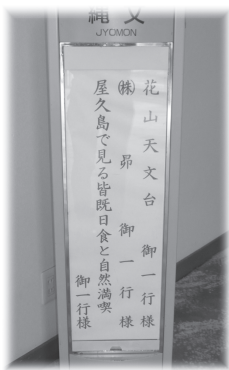 縄文
JYOMON
花山天文台 御一行様
㈱ 昴 御一行様
屋久島で見る皆既日食と自然満喫
御一行様